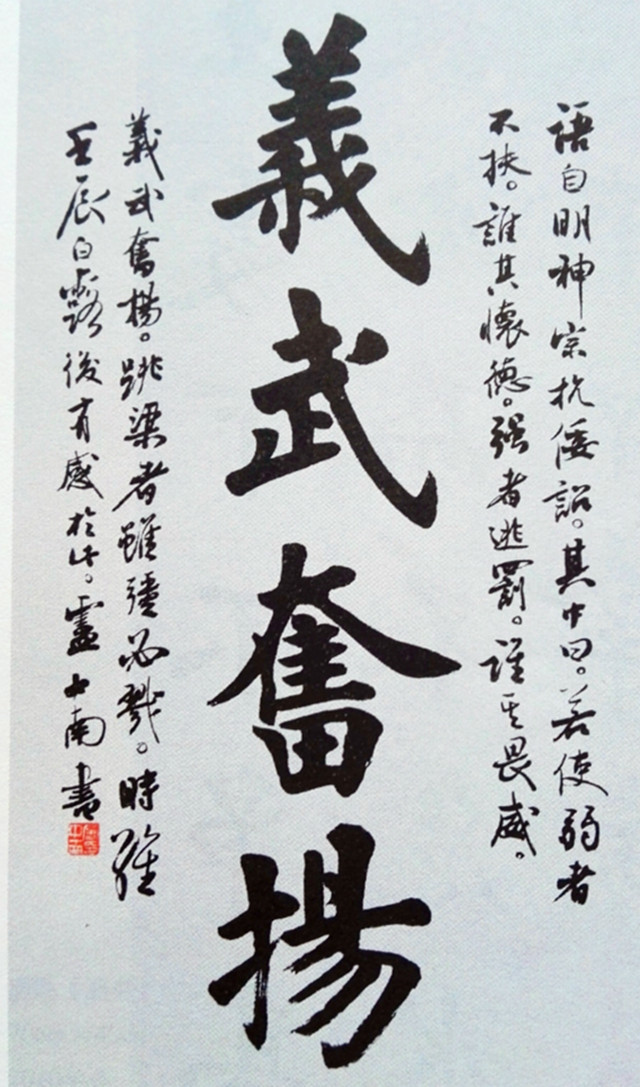 語自明神宗抗倭詔。其中曰。若使弱者
不扶。誰其懷德。强者逃罰。誰其畏威。
義武奮揚
義武奮揚。跳梁者雖彊必戮。時維
壬辰白露後有感於此。盧中南書